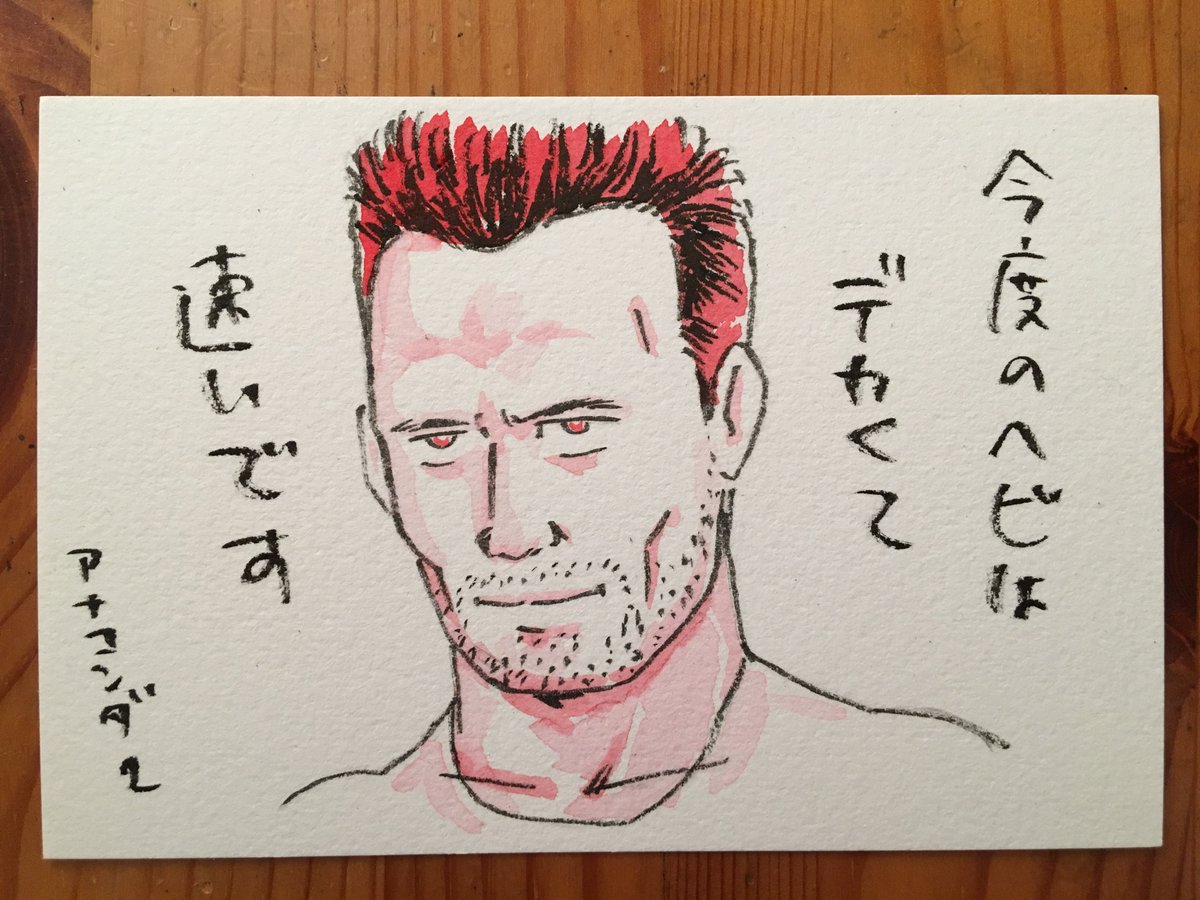 今度のヘビは
デカくて
速いです
アナコンダ2